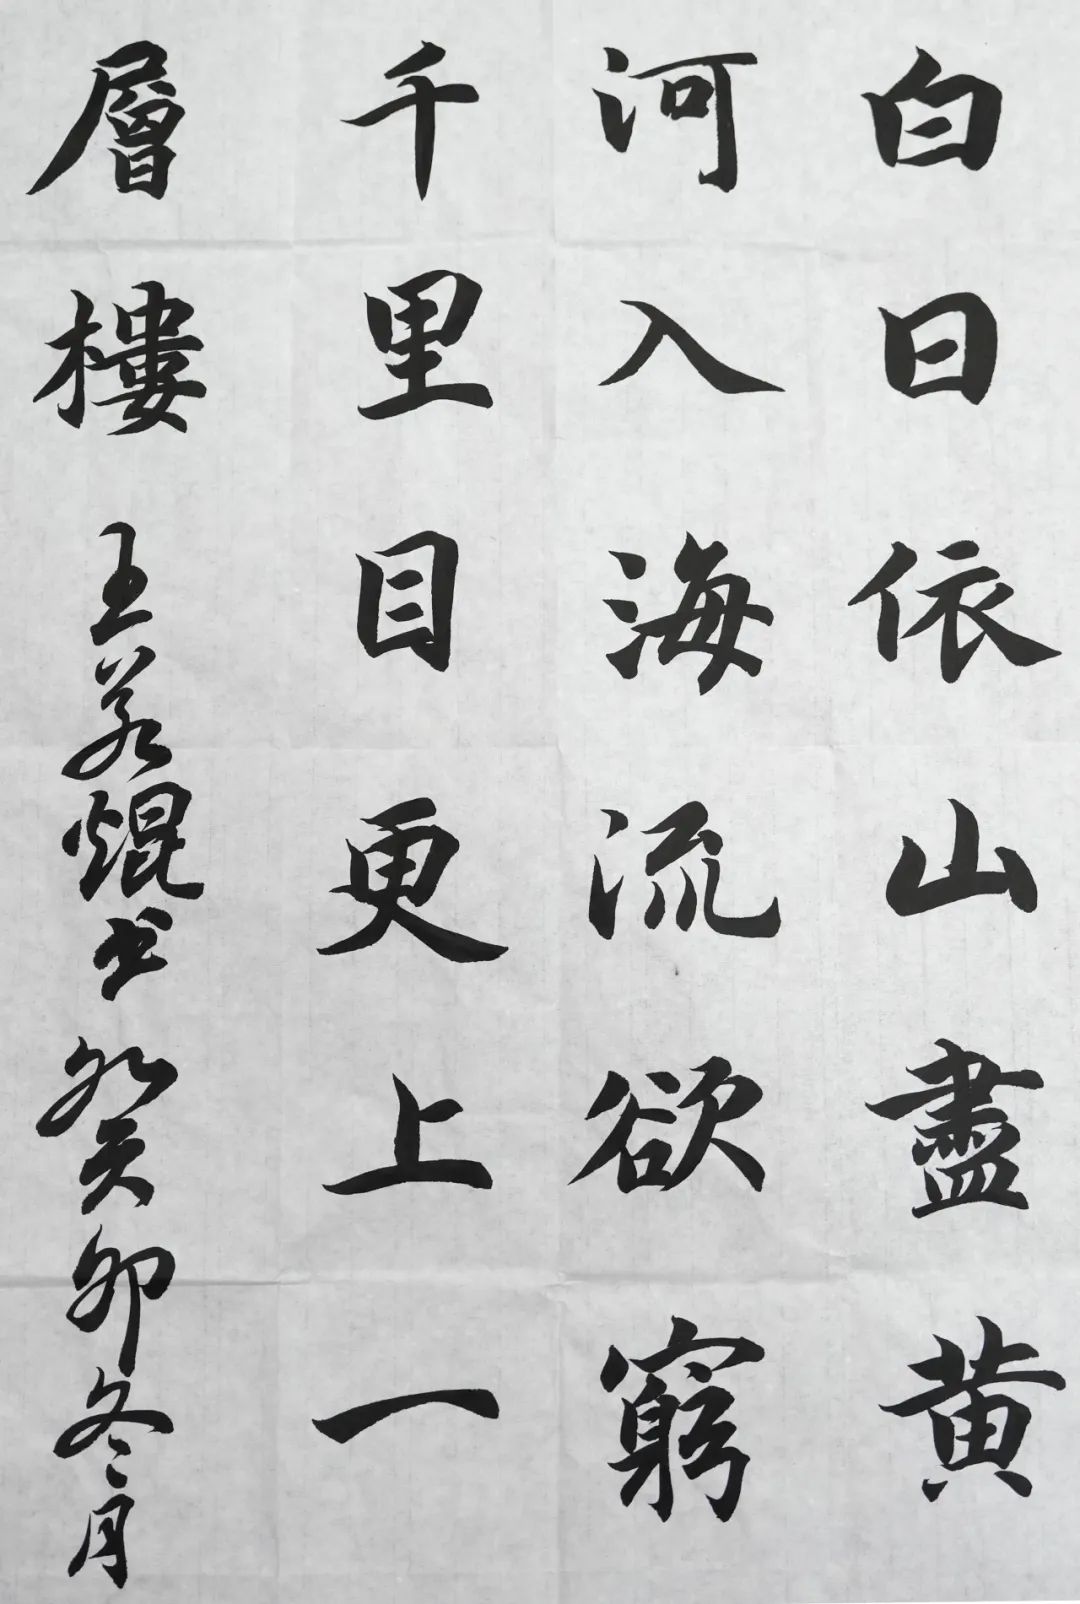 白日依山盡黄
河入海流欲窮
千里目更上一
層樓 王若焜书癸卯冬月